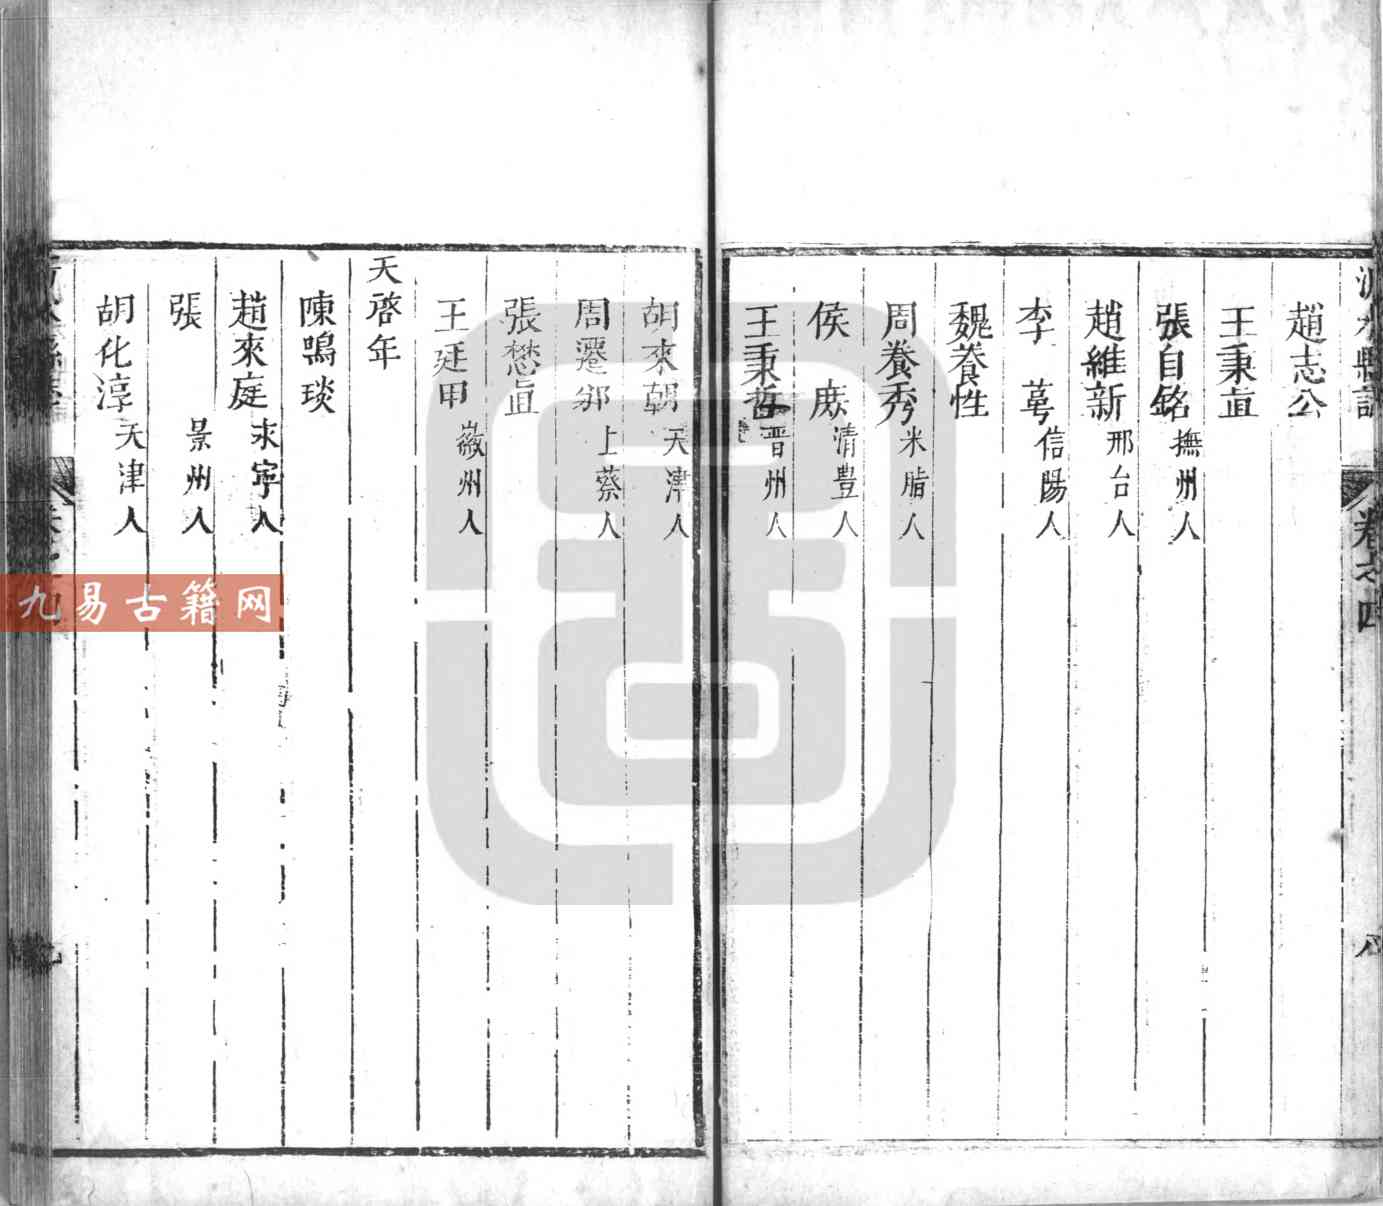 水縣誌 卷之四 八
趙志公
王秉直
張自銘 撫州人
趙維新 邢台人
李蕚 信陽人
魏養性
周養秀 米脂人
侯庻 清豊人
王秉哲 晋州人
胡來朝 天津人
周遷邠 上蔡人
張懋直
王廷甲 徽州人
天啓年
陳鳴琰
趙來庭 永寜人
張 景州人
胡化淳 天津人
九易古籍网